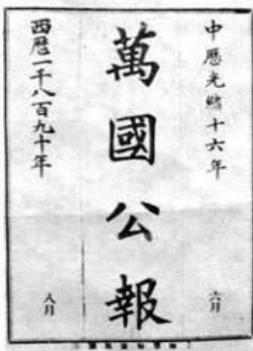 中曆光緒十六年 六月
萬國公報
西曆一千八百九十年 八月